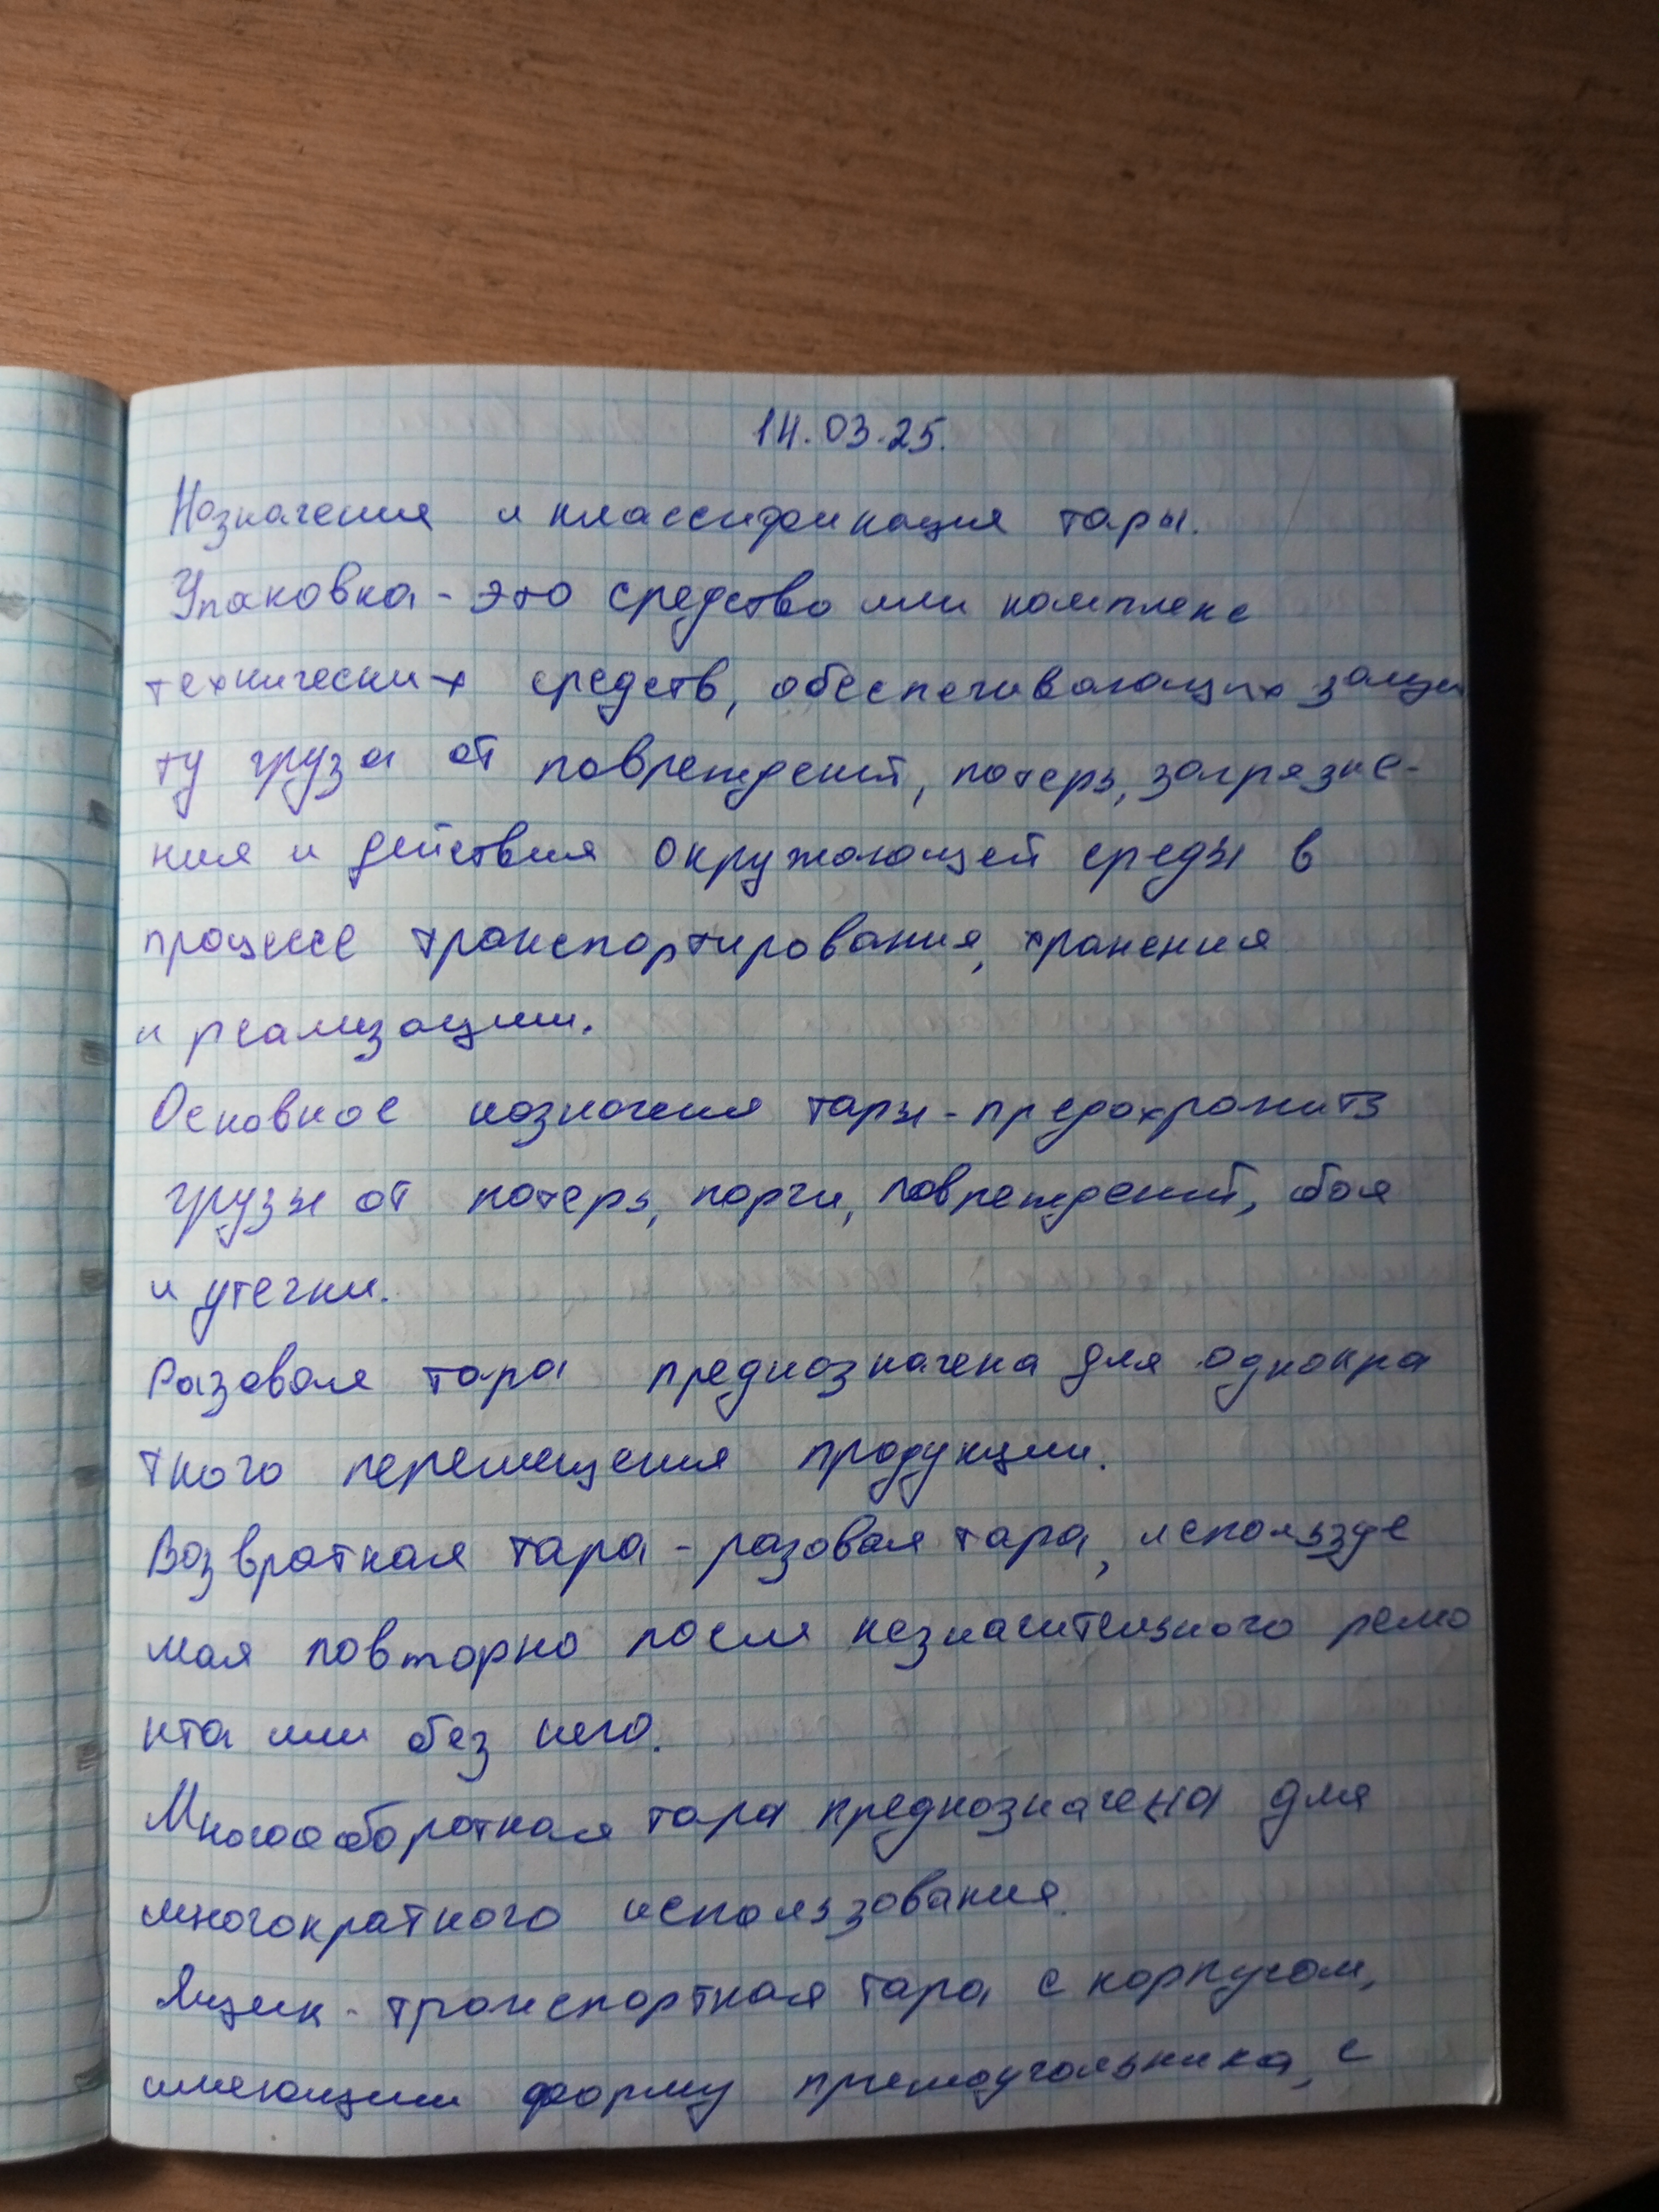 14.03.25.
Назначения и классификация тары.
Упаковка - это средство или комплекс
технических средств, обеспечивающих защи
ту груза от повреждений, потерь, загрязне-
ния и действия окружающей среды в
процессе транспортирования, хранения
и реализации.
Основное назначения тары - предохранить
грузы от потерь, порчи, повреждений, боя
и утечки.
Разовая тара предназначена для однокра
тного перемещения продукции.
Возвратная тара - разовая тара, используе
мая повторно после незначительного ремо
нта или без него.
Многооборотная тара предназначена для
многократного использования.
Ящик - транспортная тара с корпусом,
имеющим форму прямоугольника, с